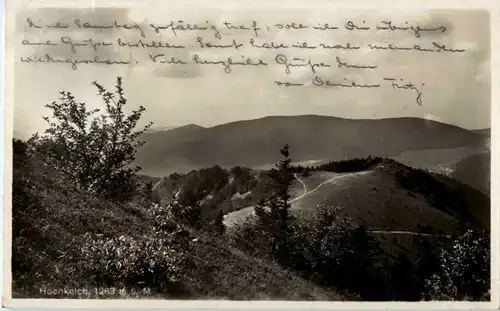 die Samstag zufällig traf, soll ich Dir übrigens
Grüße bestellen. Sonst habe ich noch niemanden
Viele herzliche Grüße Dein
von Deinem Fritz
Hochkelch, 1263 m ü. M